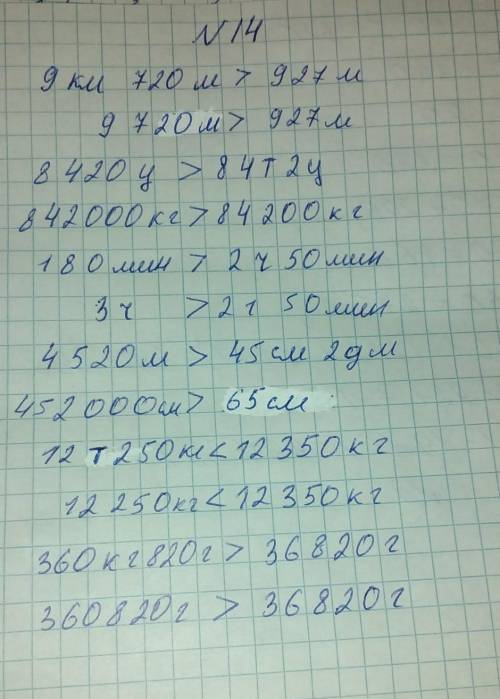 N 14
9 км 720 м > 927 м
9 720 м > 927 м
8 420 ц > 84 т 2 ц
842000 кг > 84 200 кг
180 мин > 2 ч 50 мин
3 ч > 2 ч 50 мин
4 520 м > 45 см 2 дм
452 000 см > 65 см
12 т 250 кг < 12 350 кг
12 250 кг < 12 350 кг
360 кг 820 г > 36 820 г
360 820 г > 36 820 г